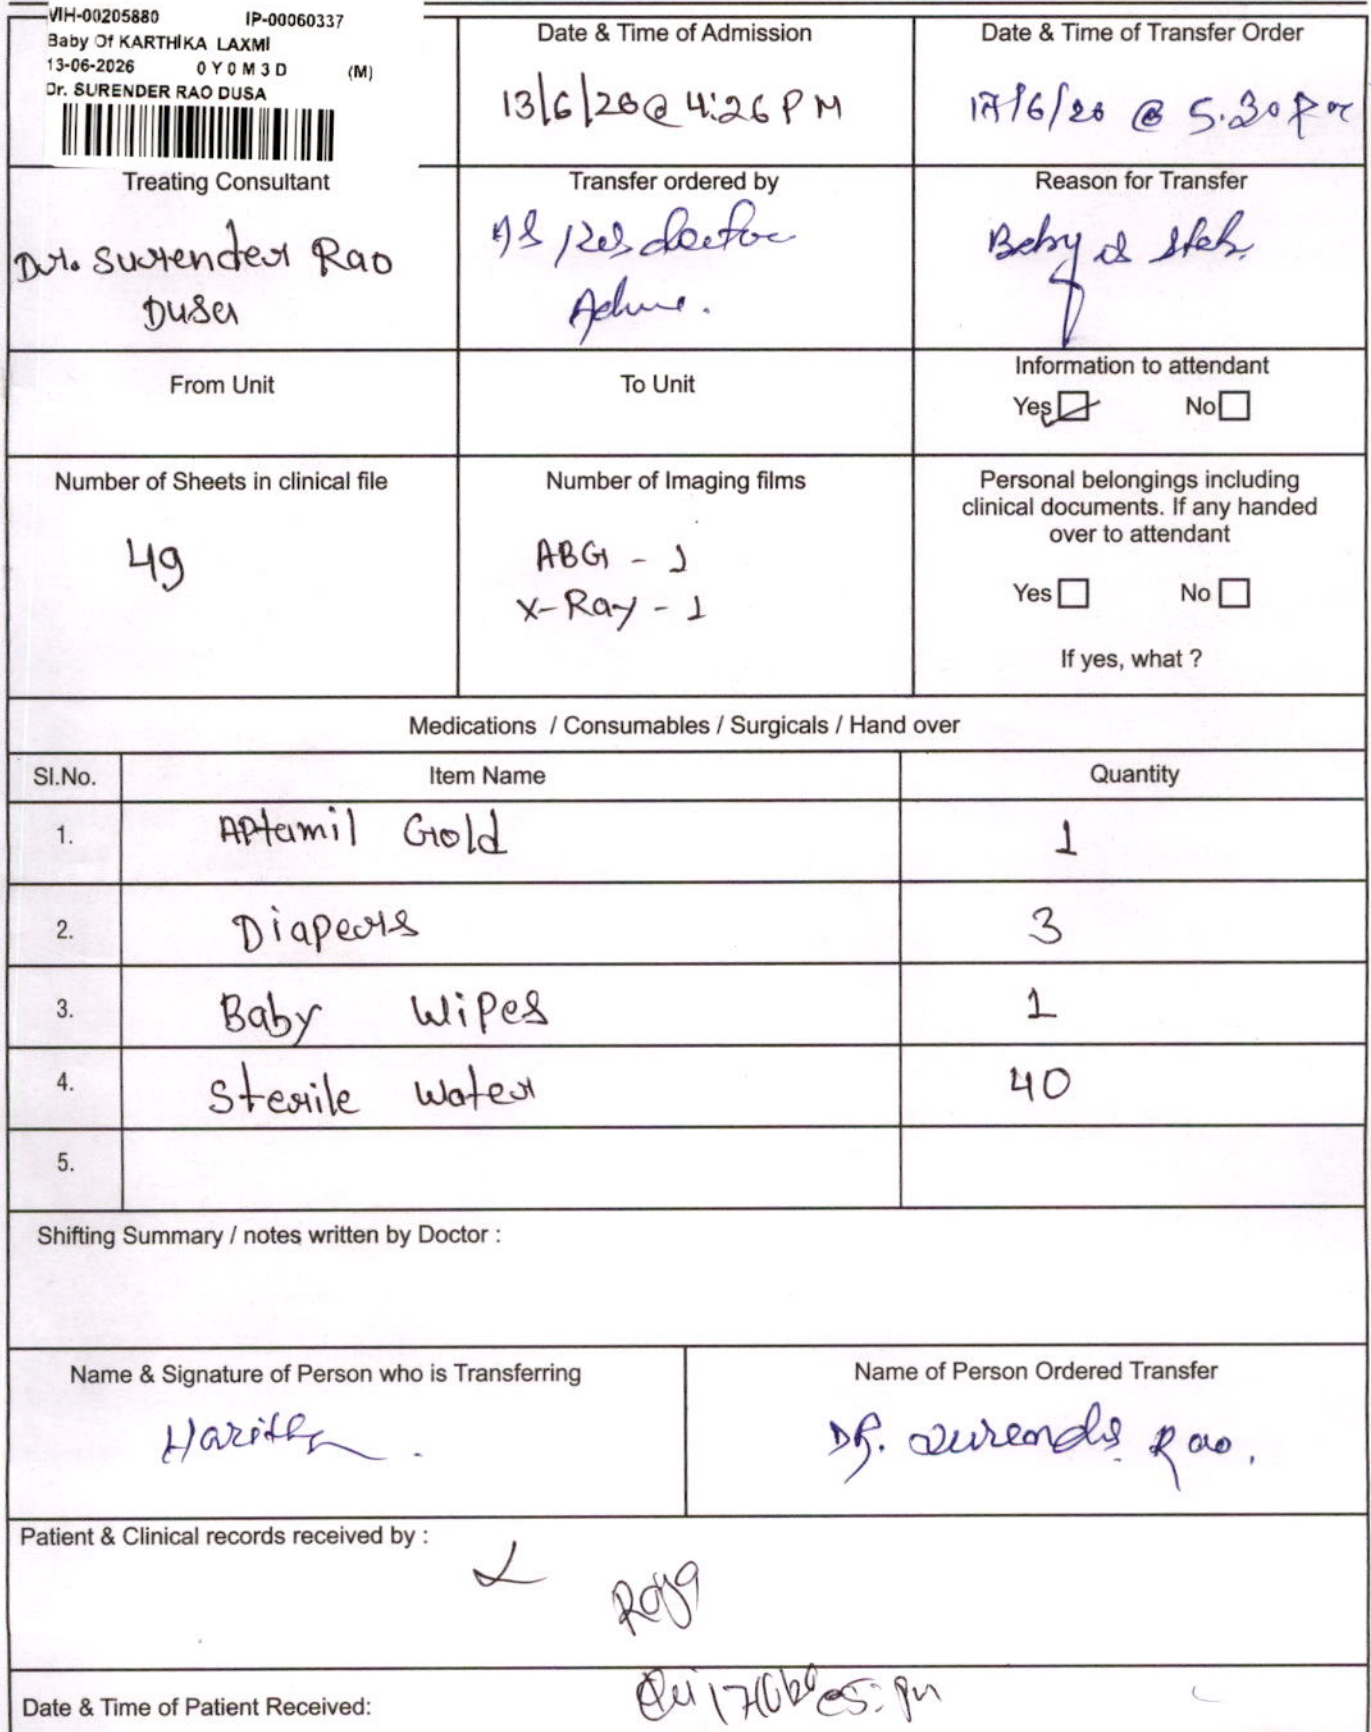 VIH-00205880 IP-00060337
Baby Of KARTHIKA LAXMI
13-06-2026 0 Y 0 M 3 D (M)
Dr. SURENDER RAO DUSA
Date & Time of Admission
13/6/26 @ 4:26 PM
Date & Time of Transfer Order
17/6/26 @ 5.30 Pm
Treating Consultant
Dr. Surender Rao
Dusa
Transfer ordered by
doctor
Reason for Transfer
Baby is
From Unit
To Unit
Information to attendant
Yes No
Number of Sheets in clinical file
49
Number of Imaging films
ABG - 1
X-Ray - 1
Personal belongings including
clinical documents. If any handed
over to attendant
Yes No
If yes, what ?
Medications / Consumables / Surgicals / Hand over
Sl.No. Item Name Quantity
1. Aptamil Gold 1
2. Diapers 3
3. Baby Wipes 1
4. Sterile Water 40
5.
Shifting Summary / notes written by Doctor :
Name & Signature of Person who is Transferring
Haritha
Name of Person Ordered Transfer
DR. Surender Rao.
Patient & Clinical records received by :
Date & Time of Patient Received: